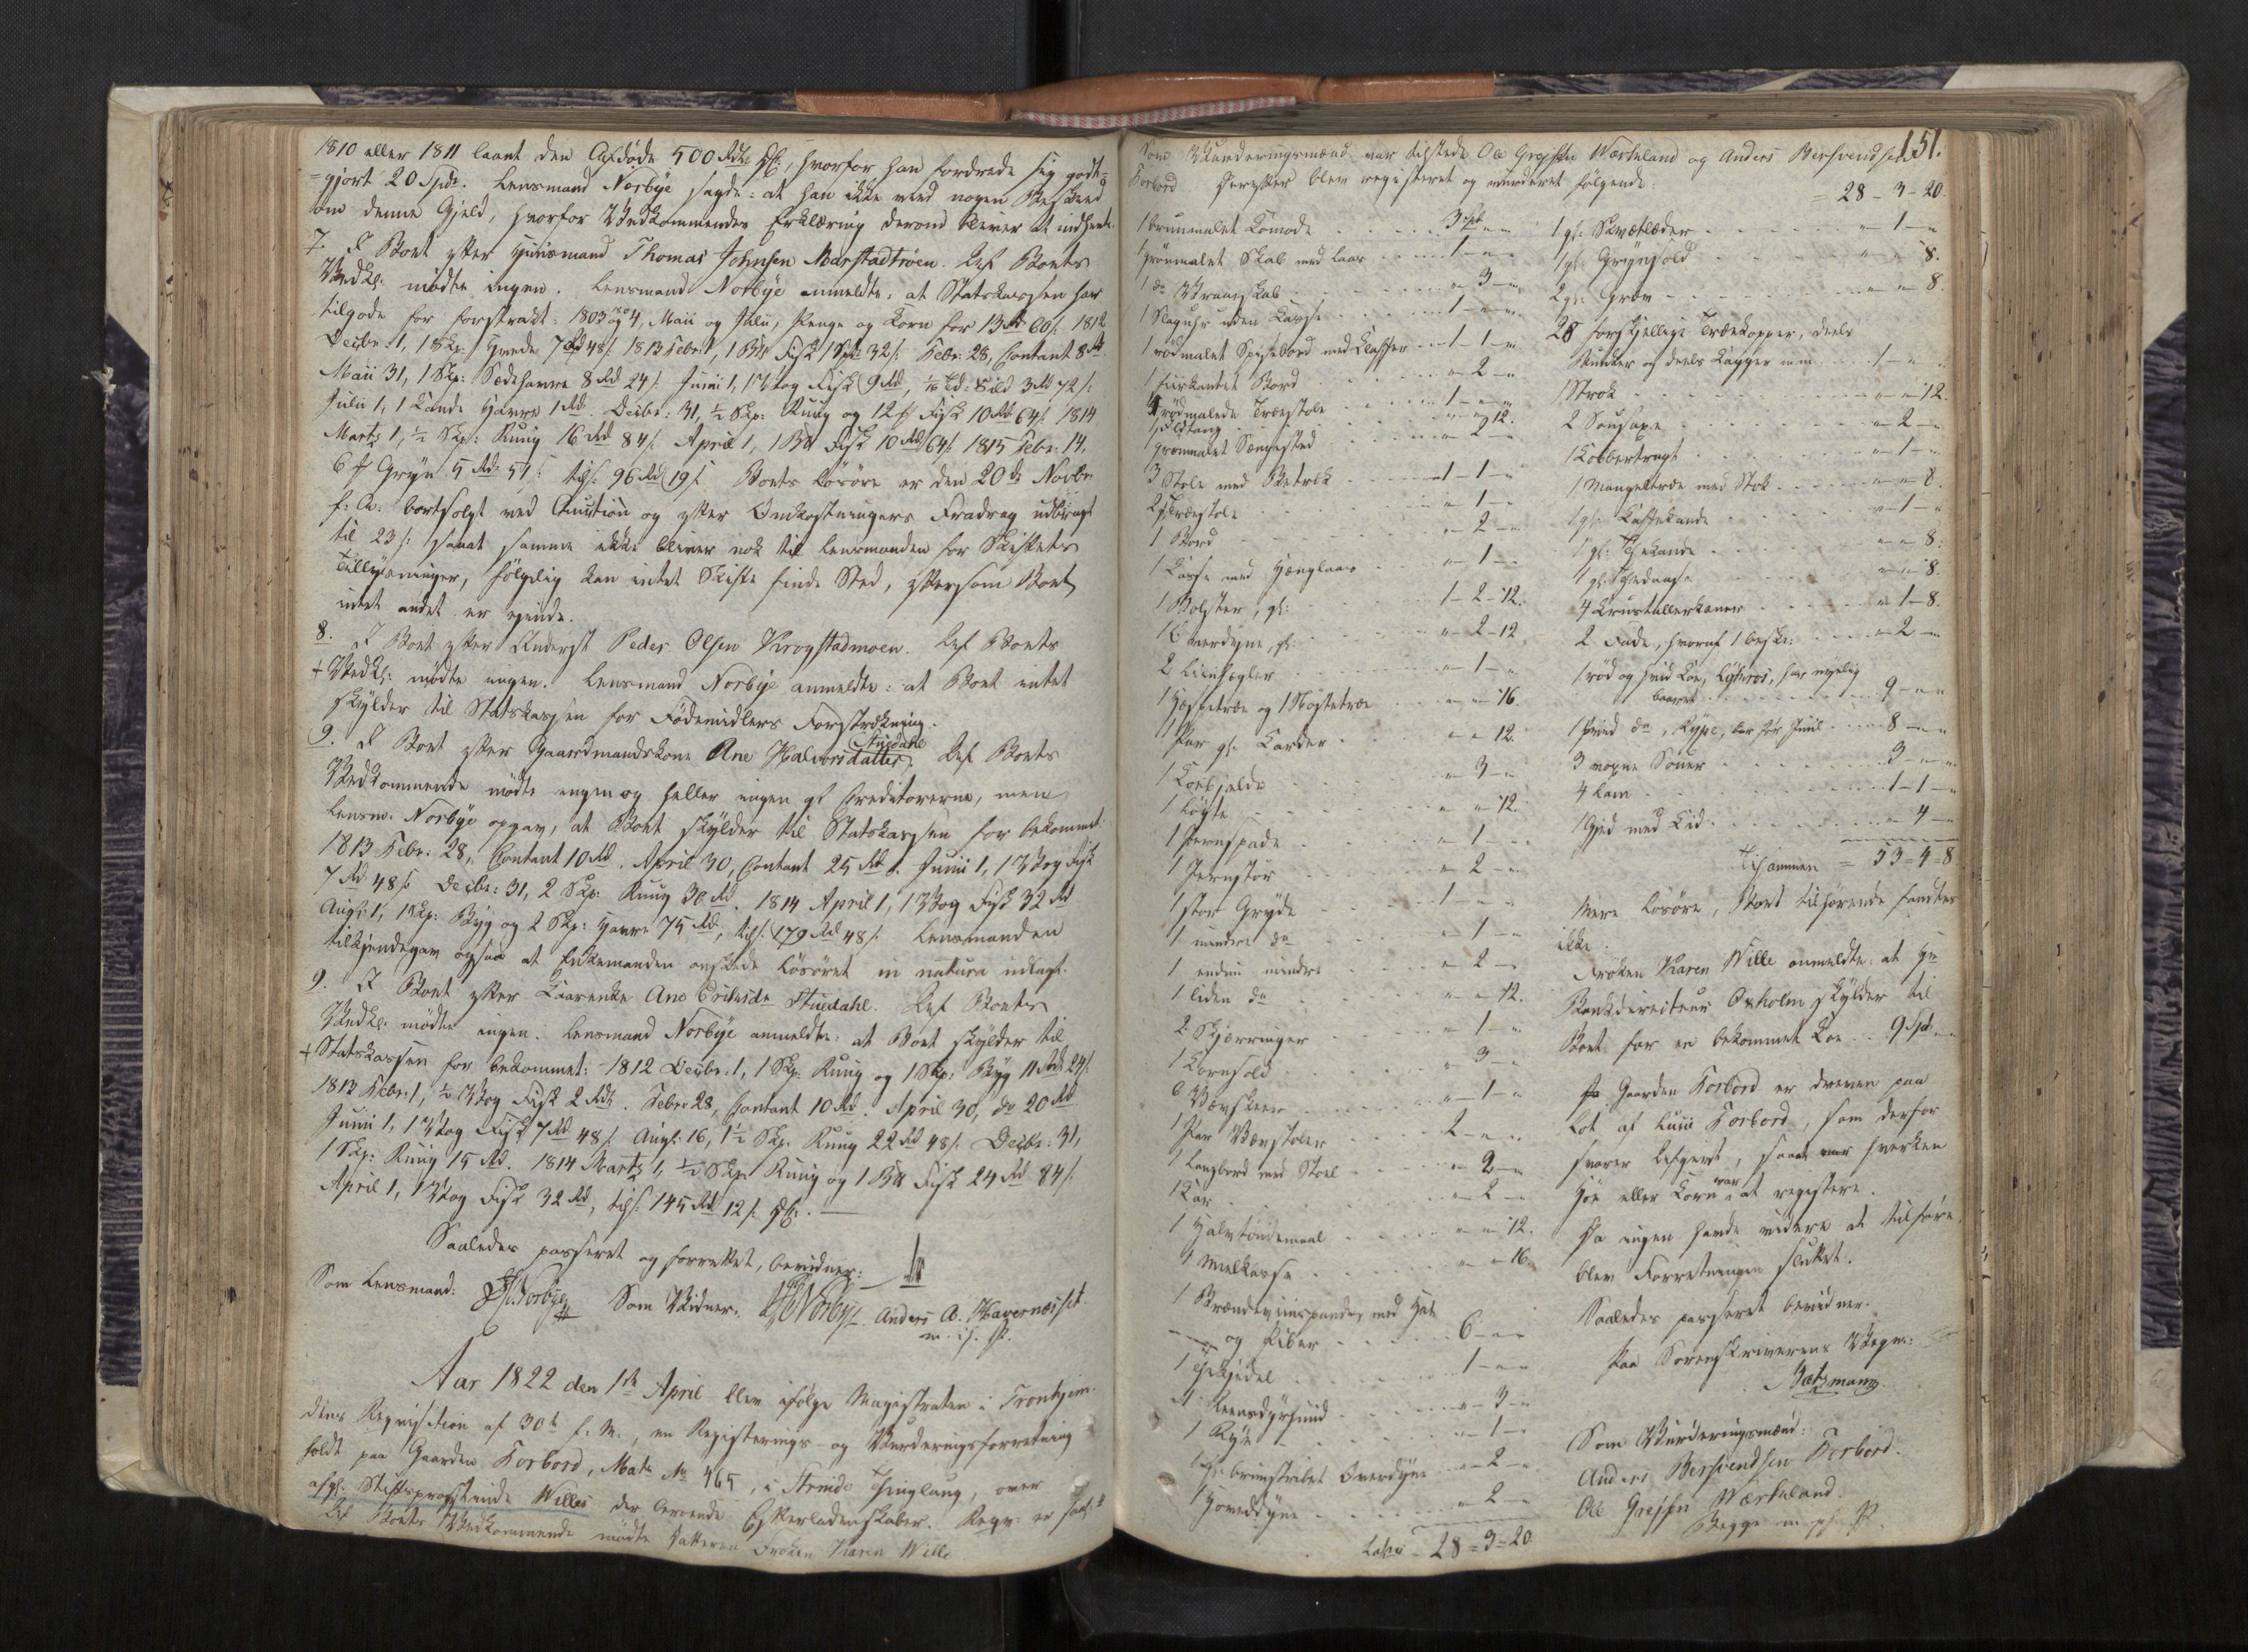 1810 eller 1811 laant den Afdøde 500 Rdr. DC:, hvorfor han fordrede sig godt-
=gjort 20 Spdr. Lensmand Norbye sagde: at han ikke veed nogen Beskeed
om denne Gjeld, hvorfor Vedkommendes Erklæring derom bliver at indhente.
7. I Boet efter Huusmand Thomas Johnsen Marstadtrøen. Af Boets
Vedk: mødte ingen. Lensmand Norbye anmeldte: at Statskassen har
tilgode for forstrakt: 1803 og 4, Maii og Julii, Penge og Korn for 13 Rd 60 s. 1812
Decbr: 1, 1 Skp: Grude 7 Rd 48 s. 1813 Febr: 1, 1 BM Fisk 1 Rd 32 s. Febr: 28, Contant 8 Rd
Maii 31, 1 Skp: Sædehavre 8 Rd 24 s. Junii 1, 1 Vog Fisk 9 Rd, 1/16 Td: Sild 3 Rd 72 s.
Julii 1, 1 Kande Havre 1 Rd. Decbr: 31, ½ Skp: Ruug og 12 # Fisk 10 Rd 64 s. 1814
Marts 1, ½ Skp: Ruug 16 Rd 84 s. April 1, 1 BM Fisk 10 Rd 64 s. 1815 Febr: 14,
6 # Gryn 5 Rd 57 s. tils: 96 Rd 19 s. Boets Løsøre er den 20de Novbr.
f: A: bortsolgt ved Auction og efter Omkostningers Fradrag udbragt
til 23 s. saaat samme ikke bliver nok til Lensmanden for Skiftets
Tillysninger, følgelig kan intet Skifte finde Sted, eftersom Boet
intet andet er eiende.
8. I Boet efter Underofst Peder Olsen Krogstadmoen. Af Boets
+ Vedk: mødte ingen. Lensmand Norbye anmeldte: at Boet intet
skylder til Statskassen for Fødemidlers Forstrækning.
9. I Boet efter Gaardmandskone Ane Halvorsdatter Stuedahl. Af Boets
Vedkommende mødte ingen og heller ingen af Creditorerne, men
Lensm. Norbye opgav, at Boet skylder til Statskassen for bekommet:
1813 Febr: 28, Contant 10 Rd. April 30, Contant 25 Rd. Junii 1, 1 Vog Fisk
7 Rd 48 s. Decbr: 31, 2 Skp: Ruug 30 Rd. 1814 April 1, 1 Vog Fisk 32 Rd
Augs: 1, 1 Skp: Byg og 2 Skp: Havre 75 Rd, tils: 179 Rd 48 s. Lensmanden
tilkjendegav ogsaa at Enkemanden ønskede Løsøret in natura udlagt.
9. I Boet efter Laarenke Ane Eriksda Stuedahl. Af Boets
Vedk: mødte ingen. Lensmand Norbye anmeldte: at Boet skylder til
+ Statskassen for bekommet: 1812 Decbr: 1, 1 Skp: Ruug og 1 Skp: Byg 11 Rd 24 s.
1813 Febr: 1, ½ Vog Fisk 2 Rd. Febr: 28, Contant 10 Rd. April 30, do 20 Rd
Junii 1, 1 Vog Fisk 7 Rd 48 s. Augs: 16, 1½ Skp: Ruug 22 Rd 48 s. Decbr: 31,
1 Skp: Ruug 15 Rd. 1814 Marts 1, ½ Skp: Ruug og 1 BM Fisk 24 Rd 84 s.
April 1, 1 Vog Fisk 32 Rd, tils: 145 Rd 12 s. DC:
Saaledes passeret og forrettet, bevidner:
Som Lensmand: Norbye Som Vidner: Norbye Anders A. Havernæsset
m. if. P.
Aar 1822 den 1ste April blev ifølge Magistraten i Tronhjem-
diens Requisition af 30te f: M., en Registerings- og Vurderingsforretning
holdt paa Gaarden Forbord, Matr No 465, i Strinde Thinglaug, over
afg: Stiftsprovstinde Willes der beroende Efterladenskaber. Reqv: er saal.
Af Boets Vedkommende mødte Datteren Frøken Karen Wille
151.
Som Vurderingsmænd var tilstede Ole Grejsen Værkeland og Anders Bersvendsen
Forbord. Derefter blev registeret og vurderet følgende:
1 bruunmalet Komode 3 Spd - „ - „
1 grønmalet Skab med Laas 1 - „ - „
1 do Vraaeskab „ - 3 - „
1 Slaguhr uden Kasse 1 - „ - „
1 rødmalet Spisebord med Klaffer 1 - 1 - „
1 fiirkantet Bord „ - 2 - „
4 rødmalede Træestole 1 - „ - „
1 Ildtang „ - „ - 12.
1 grønmalet Sængested „ - 2 - „
3 Stole med Betræk 1 - 1 - „
2 Træestole „ - 1 - „
1 Bord „ - 2 - „
1 Kasse med Hænglaas „ - 1 - „
1 Bolster, gl: 1 - 2 - 12.
1 Overdyne, gl: „ - 2 - 12
2 Liinhegler „ - 1 - „
1 Haspetræe og 1 Nøstetræe „ - „ - 16.
1 Par gl. Karder „ - „ - 12.
1 Kornsolde „ - 3 - „
1 Løgte „ - „ - 12.
1 Jernspade „ - 1 - „
1 Jernstør „ - 2 - „
1 stor Gryde 1 - „ - „
1 mindre do „ - 1 - „
1 endnu mindre „ - 2 - „
1 liden do „ - „ - 12.
2 Skjæringer „ - 1 - „
1 Kornsold „ - 3 - „
6 Vævskeer „ - 1 - „
1 Par Vævstoler 2 - „ - „
1 Langbord med Stoel „ - 2 - „
1 Kar „ - 2 - „
1 Halvtøndemaal „ - „ - 12.
1 Melkasse „ - „ - 16.
1 Brændeviinspande, med Hat
og Piber 6 - „ - „
1 Thekjedel 1 - „ - „
1 Reensdyrhuud „ - 3 - „
1 Rye „ - 1 - „
1 gl: bruunstribet Overdyne „ - 2 - „
1 Hoveddyne „ - 2 - „
Latus - 28 = 3 = 20
= 28 - 3 - 20
1 gl: Skvætlæder „ - 1 - „
1 gl: Grynsold „ - „ - 8.
2 gl: Grev „ - „ - 8.
28 forskjellige Trækopper, deels
Stinker og deels Lægger m.m. 1 - „ - „
1 Strok „ - „ - 12.
2 Sousaxe „ - 2 - „
1 Kobbertragt „ - 1 - „
1 Mangeltræe med Stok „ - „ - 8.
1 gl: Kaffekande „ - 1 - „
1 gl: Thekande „ - „ - 8.
1 gl: Thedaase „ - „ - 8.
4 Krustallerkener „ - 1 - 8.
2 Fade, hvoraf 1 besk: „ - 2 - „
1 rød og hvid Koe, Lykros, har nyelig
baaret 9 - „ - „
1 hvid do, Rype, bær før Juul 8 - „ - „
3 voxne Souer 3 - „ - „
4 Lam 1 - 1 - „
1 Gjed med Kid „ - 4 - „
Tilsammen = 53 = 4 = 8
Mere Løsøre, Boet tilhørende fandtes
ikke.
Frøken Karen Wille anmeldte: at Hr
Bankdirecteur Oxholm skylder til
Boet for en bekommet Koe 9 Spd „ „
Gaarden Forbord er dreven paa
Lot af Luui Forbord, som derfor
svarer Afgivt, saaat hverken
Høe eller Korn var at registere.
Da ingen havde videre at tilføre,
blev Forretningen sluttet.
Saaledes passeret bevidner.
Paa Sorenskriverens Vegne:
Bætzmann
Som Vurderingsmænd:
Anders Bersvendsen Forbord.
Ole Grejsen Værkeland.
Begge m. p. P.